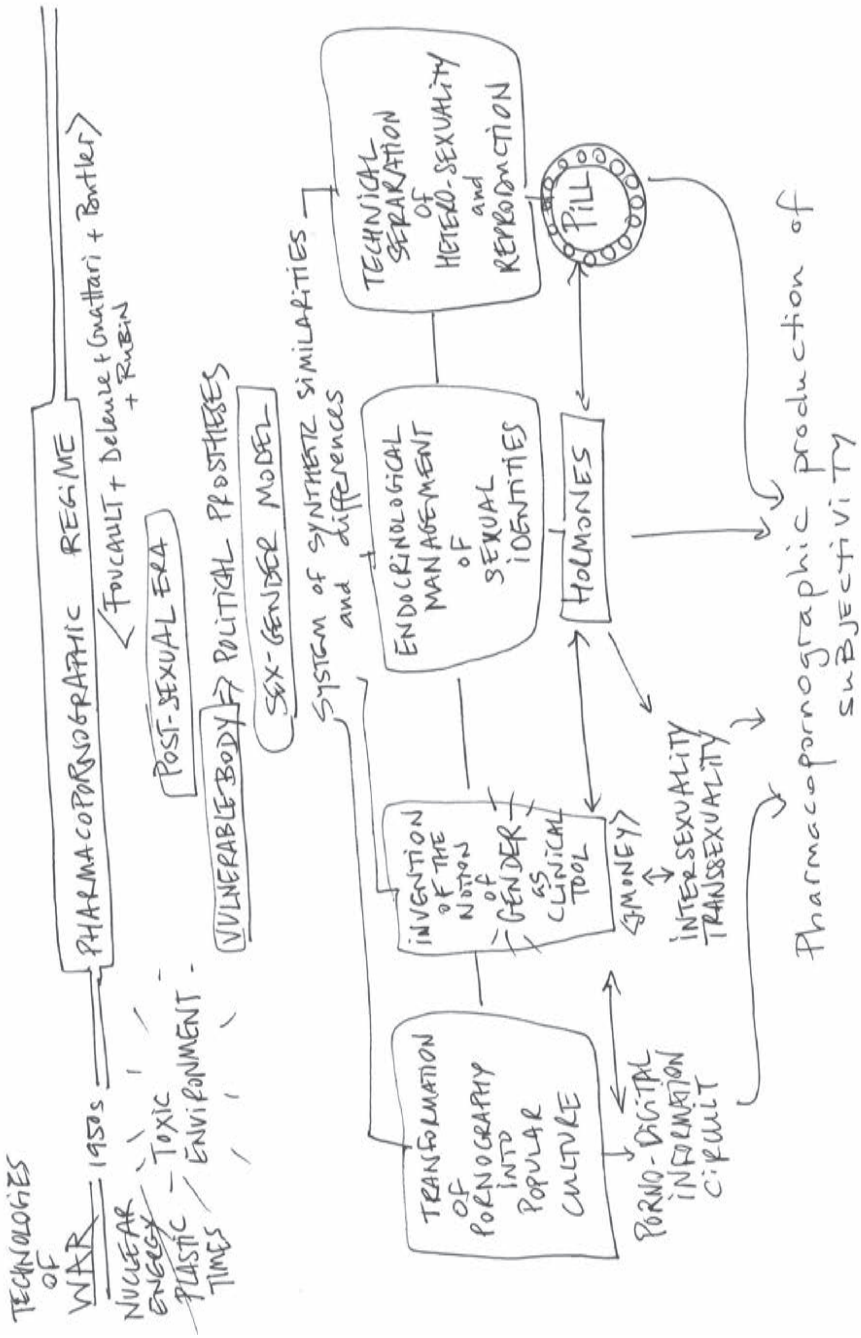 TECHNOLOGIES
OF
WAR
1950s
NUCLEAR
ENERGY
PLASTIC
TIMES
TOXIC
ENVIRONMENT
PHARMACOPORNOGRAPHIC REGIME
<FOUCAULT + Deleuze + Guattari + Butler>
+ RUBiN
POST-SEXUAL ERA
VULNERABLE BODY => POLITICAL PROSTHESES
SEX-GENDER MODEL
SYSTEM OF SYNTHETIC SiMiLARiTiES
and differences
TRANSFORMATION
OF
PORNOGRAPHY
INTO
POPULAR
CULTURE
INVENTION
OF THE
NOTION
OF
GENDER
as
CLINICAL
TOOL
ENDOCRINOLOGICAL
MANAGEMENT
OF
SEXUAL
IDENTITIES
TECHNICAL
SEPARATION
OF
HETERO-SEXUALITY
and
REPRODUCTION
PORNO-DiGiTAL
INFORMATION
CiRCUiT
<MONEY>
iNTERSEXUALiTY
TRANSSEXUALiTY
HORMONES
PiLL
Pharmacopornographic production of
SUBJECTiViTY